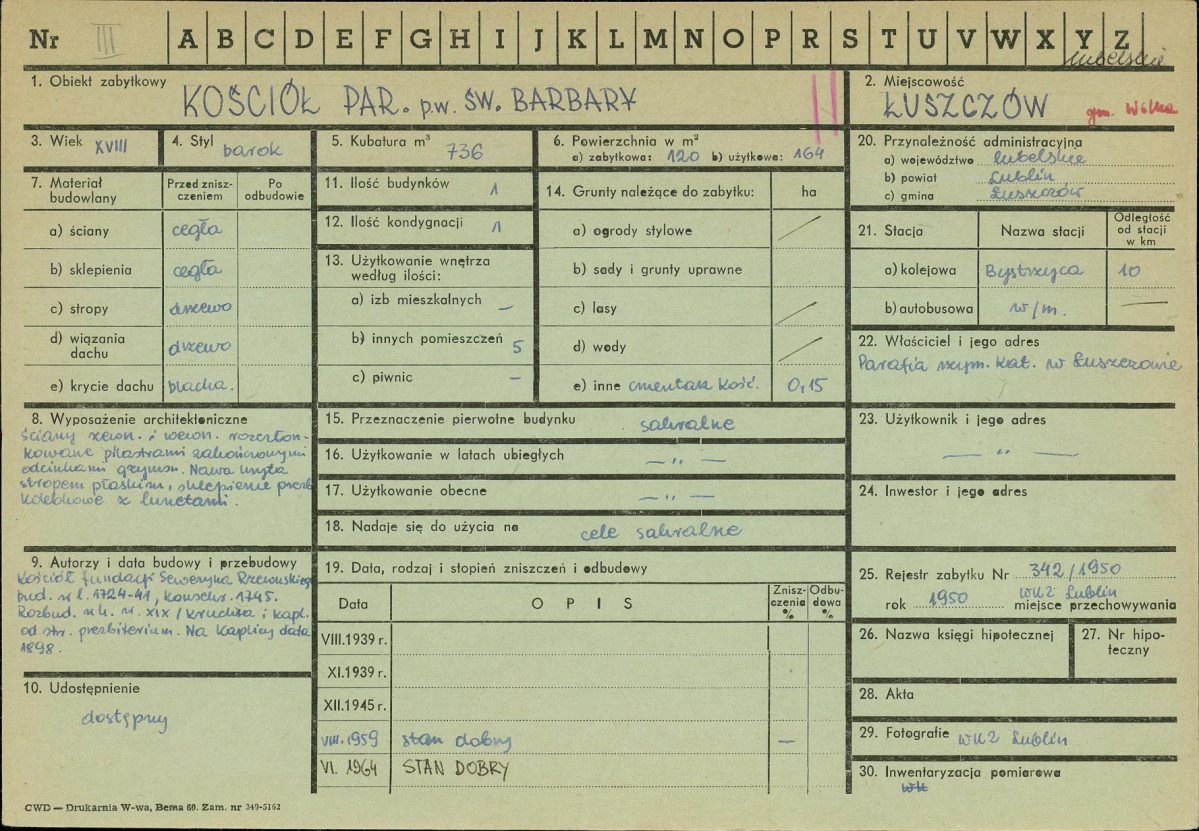 Nr III A B C D E F G H I J K L M N O P R S T U V W X Y Z
lubelskie
1. Obiekt zabytkowy
KOŚCIÓŁ PAR. p.w. ŚW. BARBARY
2. Miejscowość
ŁUSZCZÓW gm. Wólka
3. Wiek XVIII
4. Styl barok
5. Kubatura m³ 736
6. Powierzchnia w m²
a) zabytkowa: 120 b) użytkowa: 164
7. Materiał budowlany
Przed znisz-
czeniem
Po
odbudowie
a) ściany cegła
b) sklepienia cegła
c) stropy drzewo
d) wiązania
dachu drzewo
e) krycie dachu blacha.
8. Wyposażenie architektoniczne
ściany zewn. i wewn. rozczłon-
kowane pilastrami zakończonymi
odcinkami gzymsu. Nawa kryta
stropem płaskim, sklepienie prezb
kolebkowe z lunetami.
9. Autorzy i data budowy i przebudowy
Kościół fundacji Seweryna Rzewuskieg
bud. w l. 1724-41, konsekr. 1745.
Rozbud. w k. w. XIX / kruchta i kapl.
od str. prezbiterium. Na Kaplicy data
1898.
10. Udostępnienie
dostępny
11. Ilość budynków 1
12. Ilość kondygnacji 1
13. Użytkowanie wnętrza
według ilości:
a) izb mieszkalnych –
b) innych pomieszczeń 5
c) piwnic –
14. Grunty należące do zabytku: ha
a) ogrody stylowe
b) sady i grunty uprawne
c) lasy
d) wody
e) inne cmentarz Kość. 0,15
15. Przeznaczenie pierwotne budynku sakralne
16. Użytkowanie w latach ubiegłych — „ —
17. Użytkowanie obecne — „ —
18. Nadaje się do użycia na cele sakralne
19. Data, rodzaj i stopień zniszczeń i odbudowy
Data OPIS
Znisz-
czenia
%
Odbu-
dowa
%
VIII.1939 r.
XI.1939 r.
XII.1945 r.
VIII.1959 stan dobry —
VI. 1964 STAN DOBRY
20. Przynależność administracyjna
a) województwo lubelskie
b) powiat Lublin
c) gmina Łuszczów
21. Stacja Nazwa stacji
Odległość
od stacji
w km
a) kolejowa Bystrzyca 10
b) autobusowa w/m. —
22. Właściciel i jego adres
Parafia rzym. kat. w Łuszczowie
23. Użytkownik i jego adres
— „ —
24. Inwestor i jego adres
25. Rejestr zabytku Nr 342/1950
WKZ Lublin
rok 1950 miejsce przechowywania
26. Nazwa księgi hipotecznej
27. Nr hipo-
teczny
28. Akta
29. Fotografie WKZ Lublin
30. Inwentaryzacja pomiarowa
CWD — Drukarnia W-wa, Bema 60. Zam. nr 349-5162